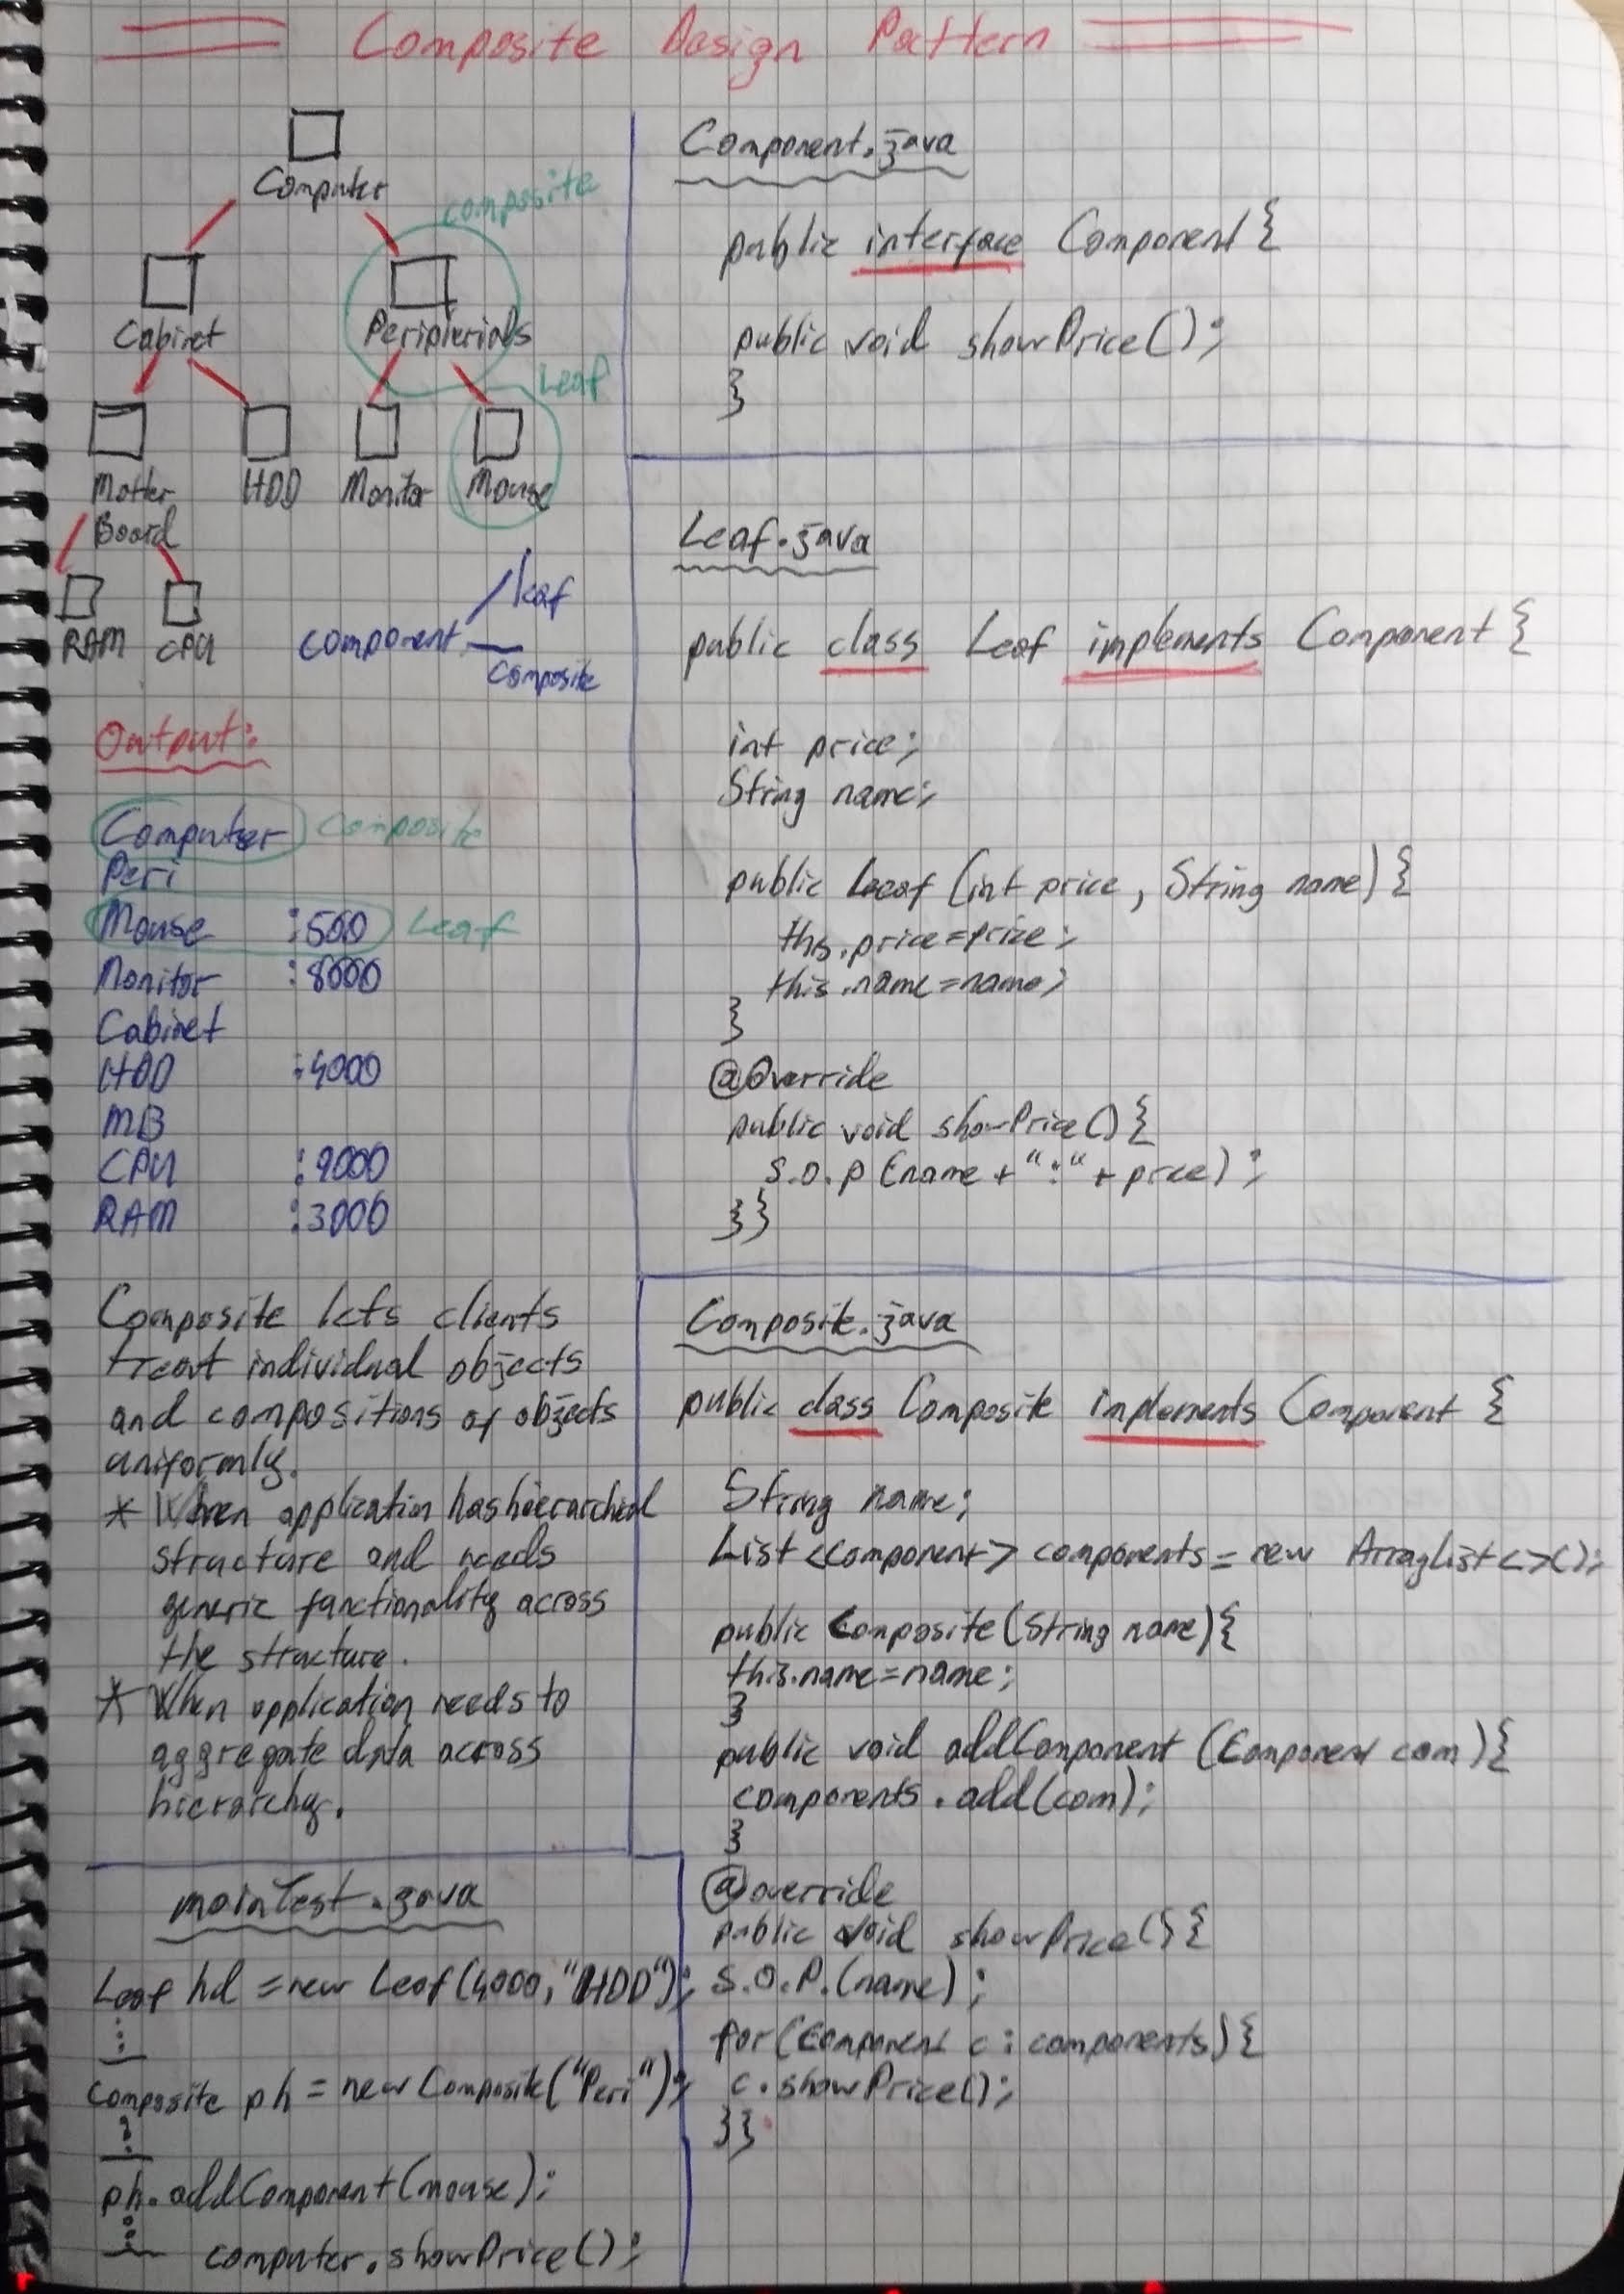 Composite Design Pattern
Computer
composite
Cabinet
Peripherials
Leaf
Motter
Board
HDD
Monitor
Mouse
RAM
CPU
component
leaf
composite
Output:
Computer Composite
Peri
Mouse :500 Leaf
Monitor :8000
Cabinet
HDD :4000
MB
CPU :9000
RAM :3000
Composite lets clients
treat individual objects
and compositions of objects
uniformly.
* When application has hierarchical
structure and needs
generic functionality across
the structure.
* When application needs to
aggregate data across
hierarchy.
mainTest.java
Leaf hd = new Leaf(4000,"HDD");
Composite ph = new Composite("Peri");
ph.addComponent(mouse);
computer.showPrice();
Component.java
public interface Component {
public void showPrice();
}
Leaf.java
public class Leaf implements Component {
int price;
String name;
public Leaf (int price, String name) {
this.price=price;
this.name=name;
}
@Override
public void showPrice() {
S.O.P (name + ":" + price);
}}
Composite.java
public class Composite implements Component {
String name;
List <Component> components = new ArrayList<>();
public Composite(String name){
this.name=name;
}
public void addComponent (Component com){
components.add(com);
}
@override
public void showPrice(){
S.O.P.(name);
for(Component c : components){
c.showPrice();
}}